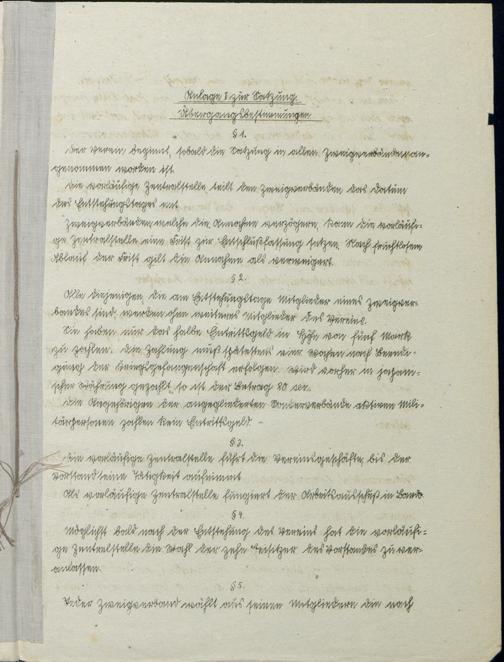 Anlage I zur Satzung.
Übergangsbestimmungen
§ 1.
Der Verein beginnt, sobald die Satzung in allen Zweigverbänden an-
genommen worden ist.
Die vorläufige Zentralstelle teilt den Zweigverbänden das Datum
des Entstehungstages mit.
Zweigverbänden, welche die Annahme verzögern, kann die vorläufi-
ge Zentralstelle eine Frist zur Entschlußfassung setzen. Nach fruchtlosem
Ablauf der Frist gilt die Annahme als verweigert.
§ 2.
Alle diejenigen, die am Entstehungstage Mitglieder eines Zweigver-
bandes sind, werden ohne weiteres Mitglieder des Vereins.
Sie haben nur das halbe Eintrittsgeld in Höhe von fünf Mark
zu zahlen. Die Zahlung muß spätestens vier Wochen nach Beendi-
gung der Kriegsgefangenschaft erfolgen. Wird vorher in japani-
scher Währung gezahlt, so ist der Betrag 80 sen.
Die Angehörigen der angegliederten Sonderverbände aktiven Mili-
tärpersonen zahlen kein Eintrittsgeld. -
§ 3.
Die vorläufige Zentralstelle führt die Vereinsgeschäfte, bis der
Vorstand seine Tätigkeit aufnimmt.
Als vorläufige Zentralstelle fungiert der Arbeitsausschuß in Bando.
§ 4.
Möglichst bald nach der Entstehung des Vereins hat die vorläufi-
ge Zentralstelle die Wahl der zehn Beisitzer des Vorstandes zu ver-
anlassen.
§ 5.
Jeder Zweigverband wählt aus seinen Mitgliedern die nach